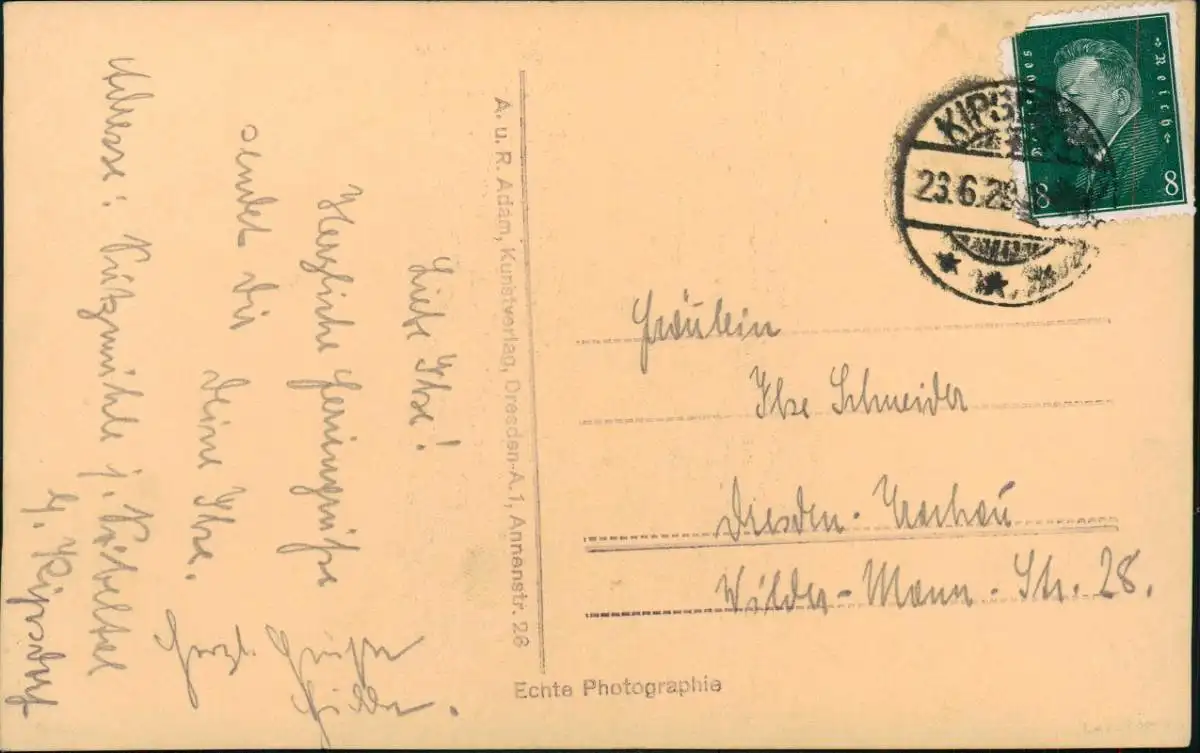 Liebe Ilse!
Herzliche Feriengrüße
sendet Dir
Deine Ilse.
Herzl. Grüße
Hilde.
Adresse: Pützmühle j. Pöbeltal
b. Kipsdorf
A. u. R. Adam, Kunstverlag, Dresden-A. 1, Annenstr. 26
Echte Photographie
Deutsches Reich
8 8
KIPSDORF
23.6.29
Fräulein
Ilse Schneider
Dresden-Trachau
Wilder-Mann-Str. 28.